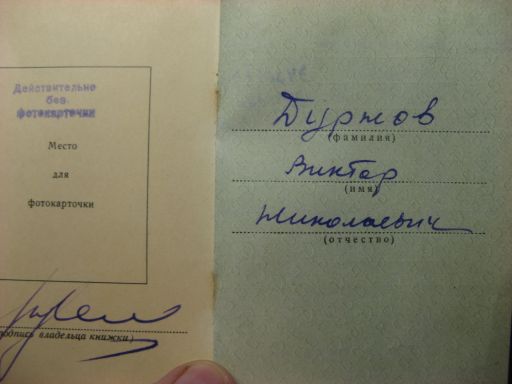 Действительно
без
фотокарточки
Место
для
фотокарточки
(подпись владельца книжки)
Дурнов
(фамилия)
Виктор
(имя)
Николаевич
(отчество)